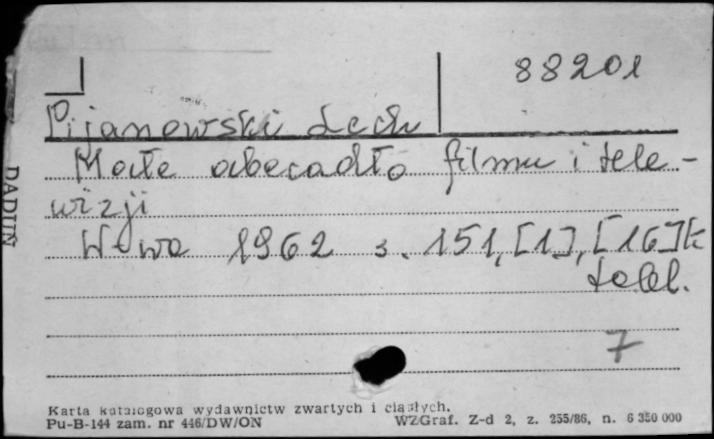 88201
Pijanowski Lech
Małe abecadło filmu i tele-
wizji
W-wa 1962 s. 151, [1], [16] k
tabl.
7
DADUŃ
Karta katalogowa wydawnictw zwartych i ciągłych.
Pu-B-144 zam. nr 446/DW/ON WZGraf. Z-d 2, z. 255/86, n. 6 350 000